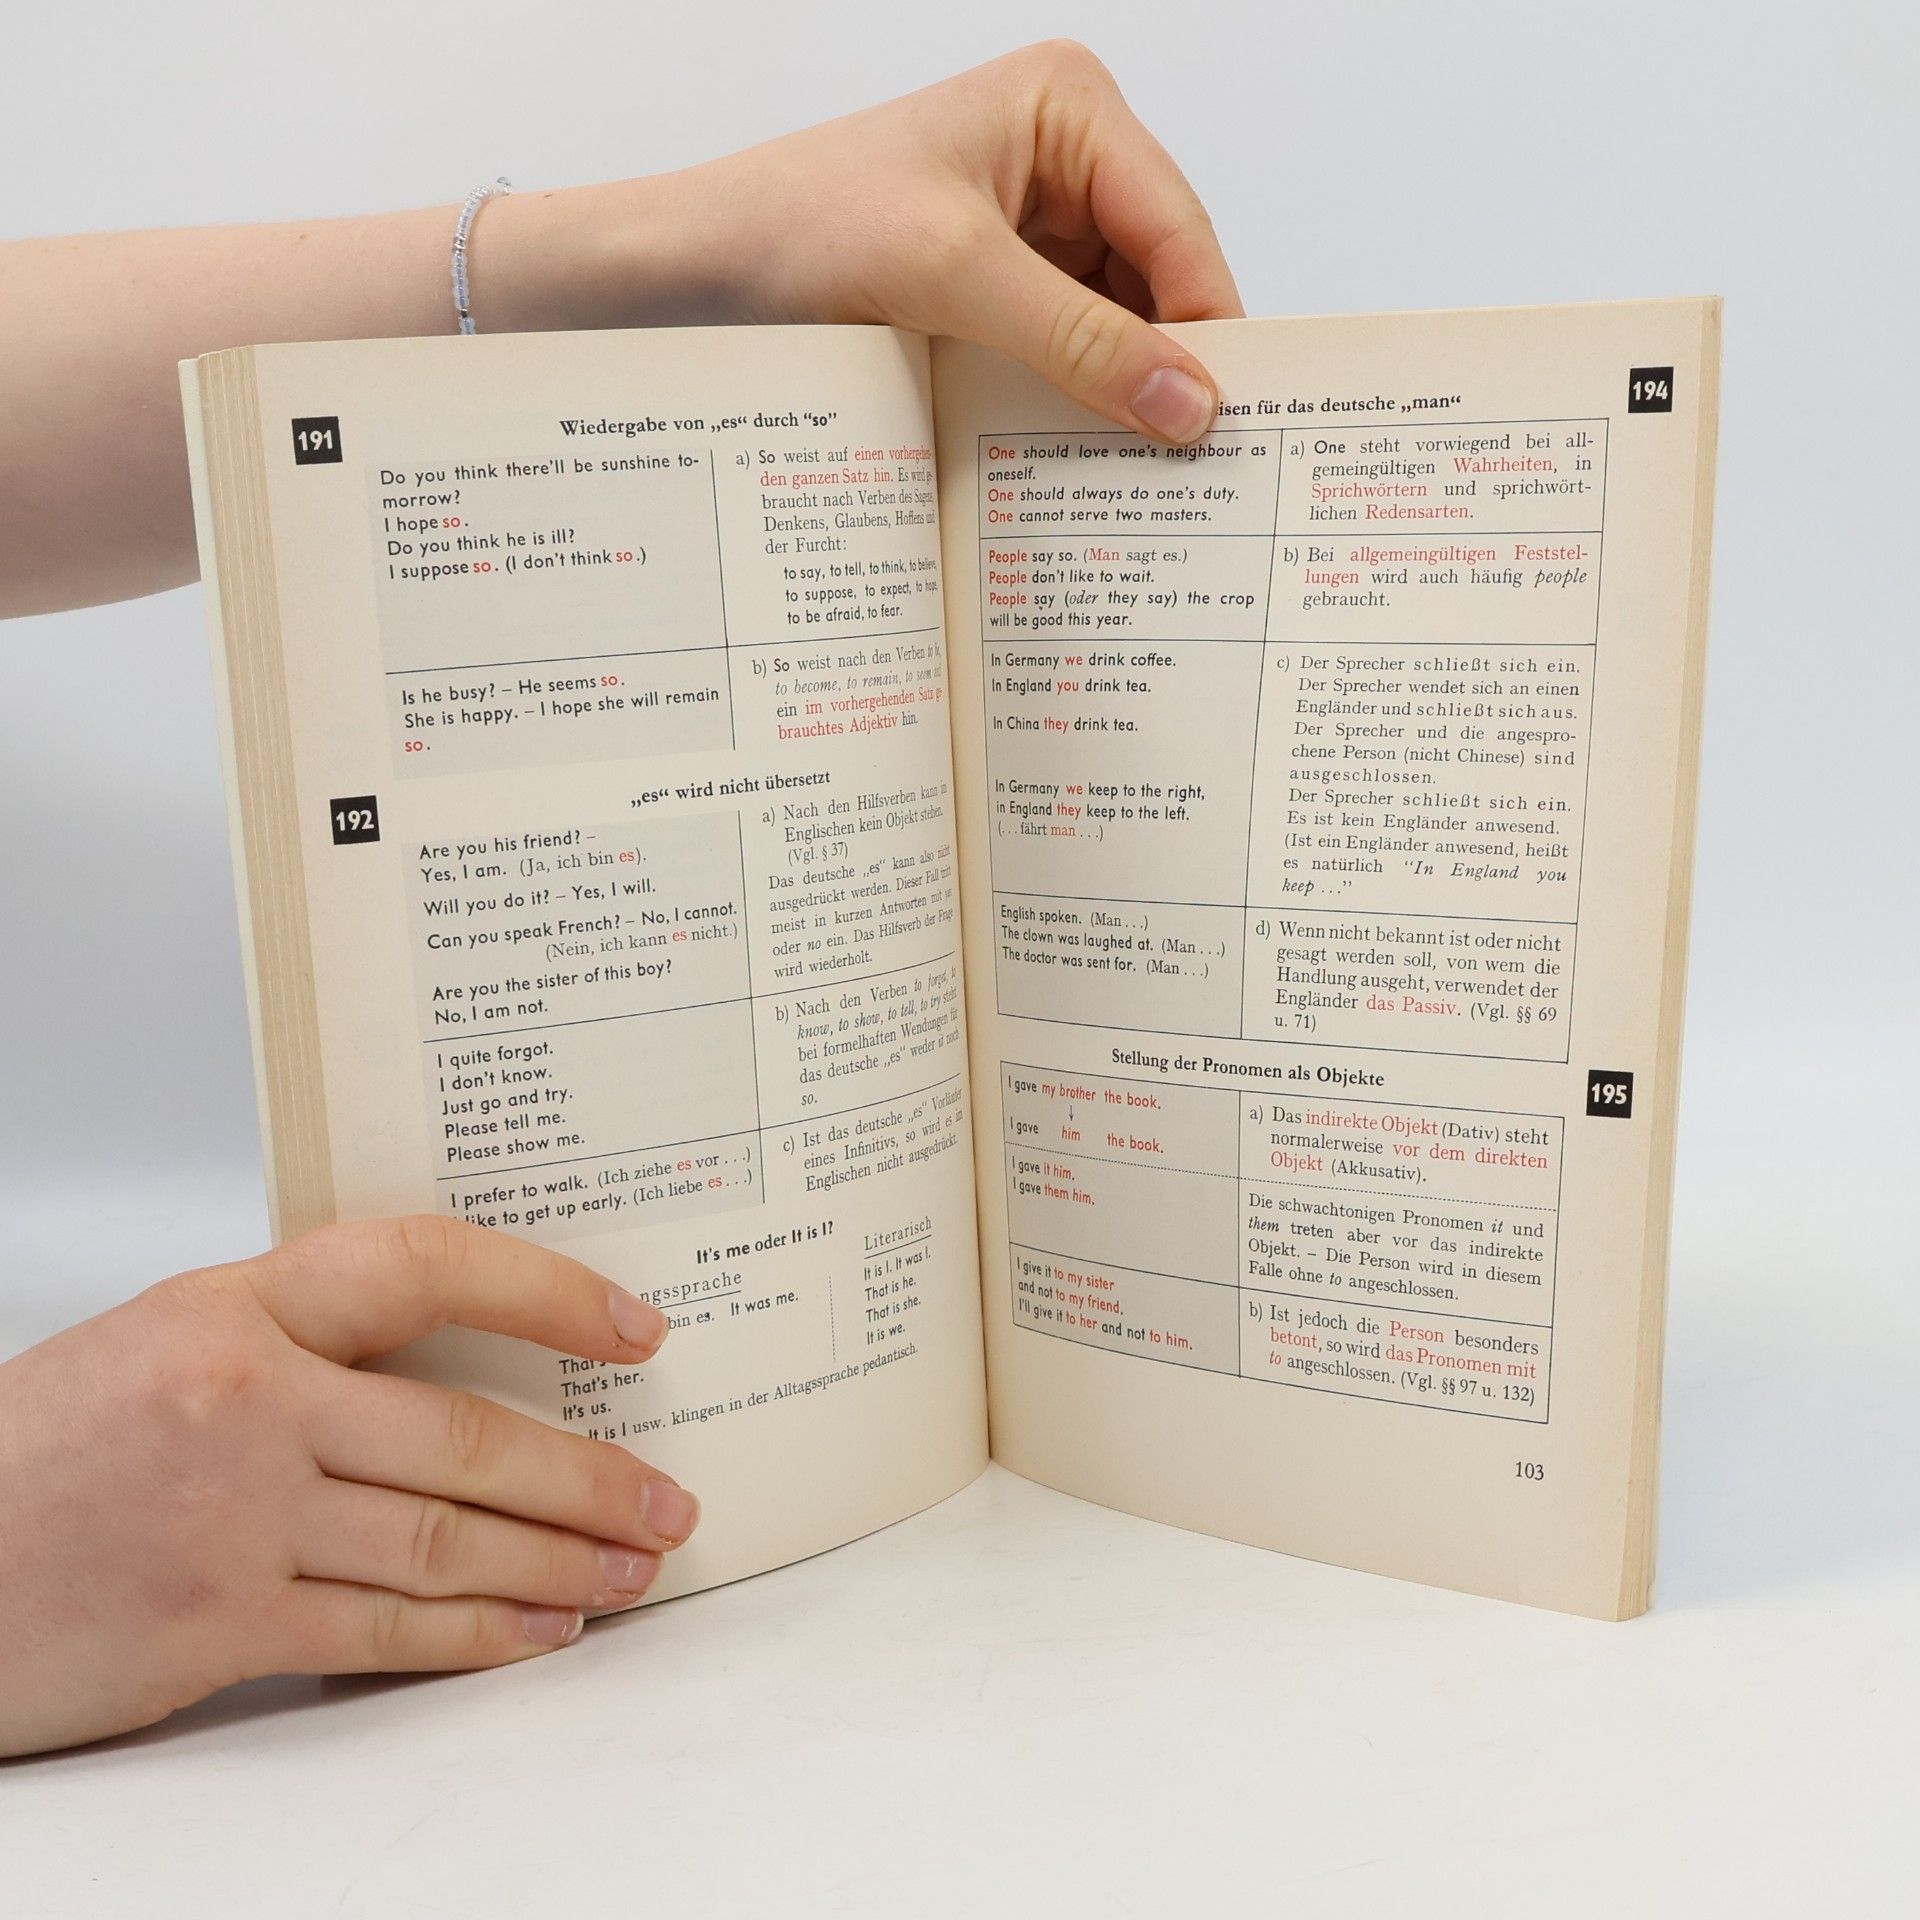 191
Wiedergabe von „es“ durch “so”
Do you think there'll be sunshine to-
morrow?
I hope so.
Do you think he is ill?
I suppose so. (I don't think so.)
a) So weist auf einen vorhergehen-
den ganzen Satz hin. Es wird ge-
braucht nach Verben des Sagens,
Denkens, Glaubens, Hoffens und
der Furcht:
to say, to tell, to think, to believe,
to suppose, to expect, to hope,
to be afraid, to fear.
Is he busy? – He seems so.
She is happy. – I hope she will remain
so.
b) So weist nach den Verben to be,
to become, to remain, to seem auf
ein im vorhergehenden Satz ge-
brauchtes Adjektiv hin.
192
„es“ wird nicht übersetzt
Are you his friend? –
Yes, I am. (Ja, ich bin es).
Will you do it? – Yes, I will.
Can you speak French? – No, I cannot.
(Nein, ich kann es nicht.)
Are you the sister of this boy?
No, I am not.
a) Nach den Hilfsverben kann im
Englischen kein Objekt stehen.
(Vgl. § 37)
Das deutsche „es“ kann also nicht
ausgedrückt werden. Dieser Fall tritt
meist in kurzen Antworten mit yes
oder no ein. Das Hilfsverb der Frage
wird wiederholt.
I quite forgot.
I don't know.
Just go and try.
Please tell me.
Please show me.
b) Nach den Verben to forget, to
know, to show, to tell, to try steht
bei formelhaften Wendungen für
das deutsche „es“ weder it noch
so.
I prefer to walk. (Ich ziehe es vor . . .)
like to get up early. (Ich liebe es . . .)
c) Ist das deutsche „es“ Vorläufer
eines Infinitivs, so wird es im
Englischen nicht ausgedrückt.
It's me oder It is I?
ngssprache
bin es. It was me.
That's her.
It's us.
Literarisch
It is I. It was I.
That is he.
That is she.
It is we.
It is I usw. klingen in der Alltagssprache pedantisch.
194
isen für das deutsche „man“
One should love one's neighbour as
oneself.
One should always do one's duty.
One cannot serve two masters.
a) One steht vorwiegend bei all-
gemeingültigen Wahrheiten, in
Sprichwörtern und sprichwört-
lichen Redensarten.
People say so. (Man sagt es.)
People don't like to wait.
People say (oder they say) the crop
will be good this year.
b) Bei allgemeingültigen Feststel-
lungen wird auch häufig people
gebraucht.
In Germany we drink coffee.
In England you drink tea.
In China they drink tea.
In Germany we keep to the right,
in England they keep to the left.
(. . . fährt man . . .)
c) Der Sprecher schließt sich ein.
Der Sprecher wendet sich an einen
Engländer und schließt sich aus.
Der Sprecher und die angespro-
chene Person (nicht Chinese) sind
ausgeschlossen.
Der Sprecher schließt sich ein.
Es ist kein Engländer anwesend.
(Ist ein Engländer anwesend, heißt
es natürlich “In England you
keep . . .”
English spoken. (Man . . .)
The clown was laughed at. (Man . . .)
The doctor was sent for. (Man . . .)
d) Wenn nicht bekannt ist oder nicht
gesagt werden soll, von wem die
Handlung ausgeht, verwendet der
Engländer das Passiv. (Vgl. §§ 69
u. 71)
195
Stellung der Pronomen als Objekte
I gave my brother the book.
↓
I gave him the book.
I gave it him.
I gave them him.
a) Das indirekte Objekt (Dativ) steht
normalerweise vor dem direkten
Objekt (Akkusativ).
Die schwachtonigen Pronomen it und
them treten aber vor das indirekte
Objekt. – Die Person wird in diesem
Falle ohne to angeschlossen.
I give it to my sister
and not to my friend.
I'll give it to her and not to him.
b) Ist jedoch die Person besonders
betont, so wird das Pronomen mit
to angeschlossen. (Vgl. §§ 97 u. 132)
103